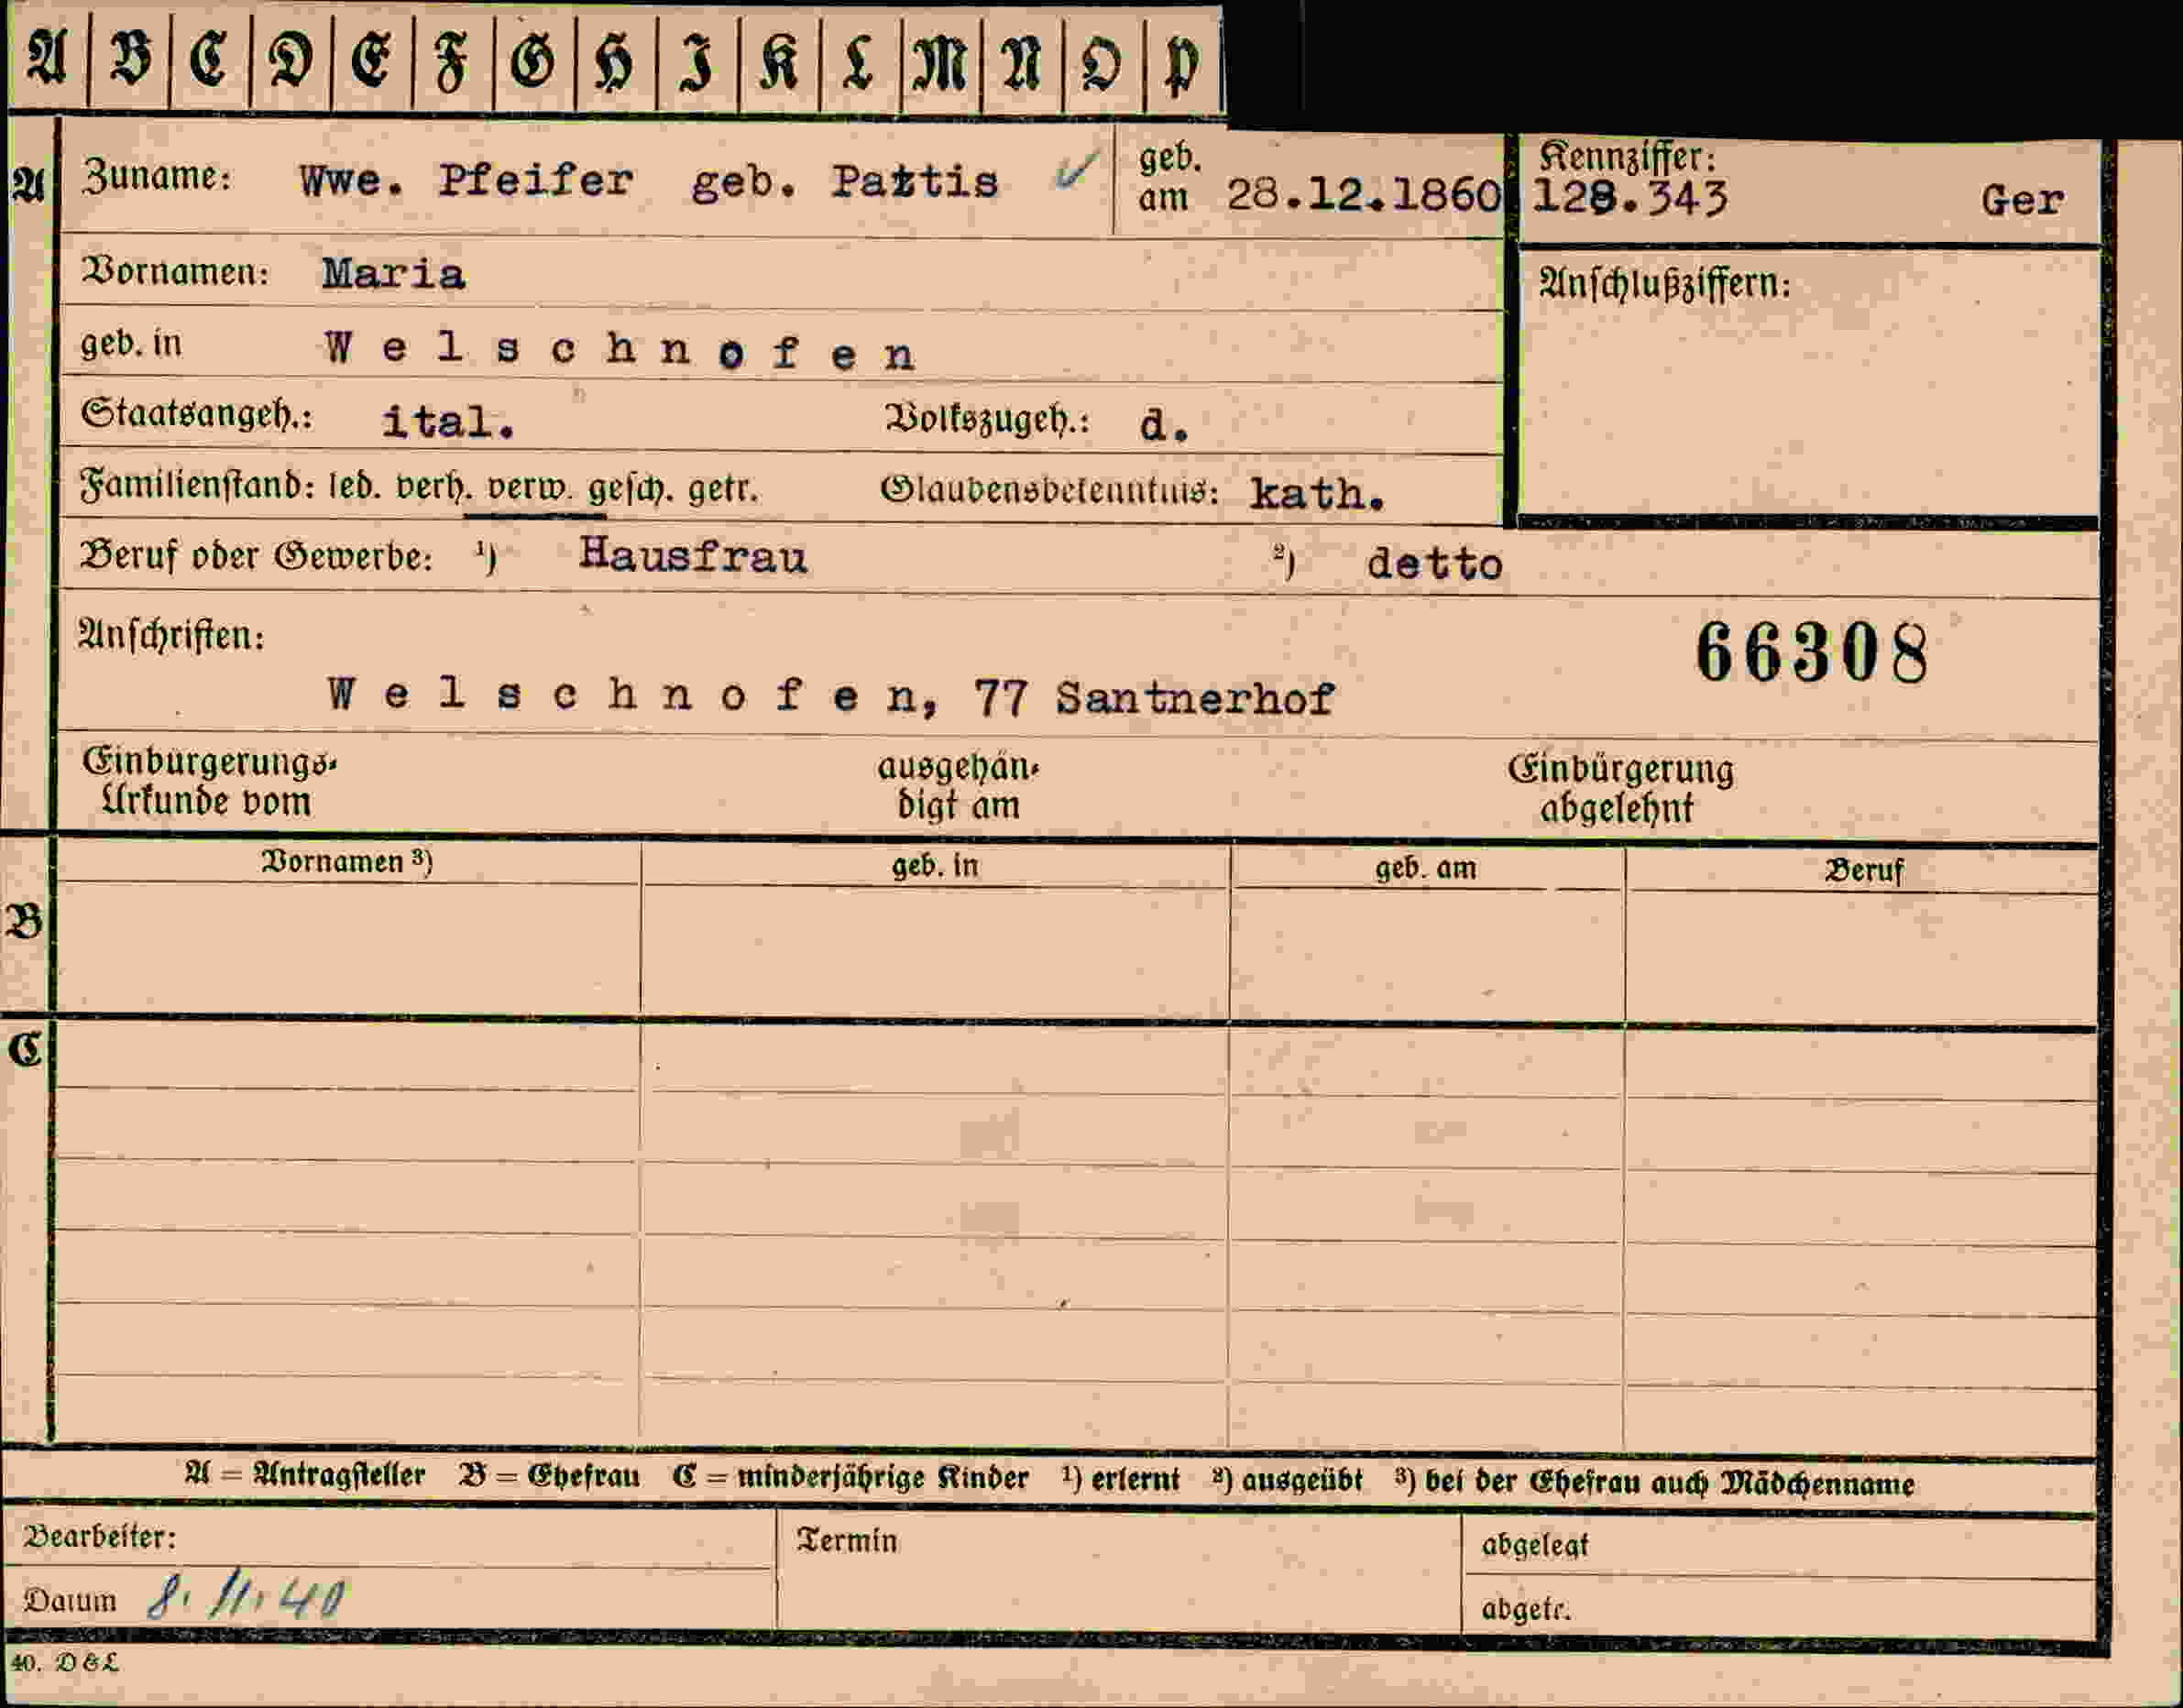 A B C D E F G H I K L M N O P
A Zuname: Wwe. Pfeifer geb. Pattis ✓ geb. am 28.12.1860 Kennziffer: 128.343 Ger
Vornamen: Maria Anschlußziffern:
geb. in W e l s c h n o f e n
Staatsangeh.: ital. Volkszugeh.: d.
Familienstand: led. verh. verw. gesch. getr. Glaubensbekenntnis: kath.
Beruf oder Gewerbe: ¹) Hausfrau ²) detto
Anschriften: 66308
W e l s c h n o f e n, 77 Santnerhof
Einbürgerungs- ausgehän- Einbürgerung
Urkunde vom digt am abgelehnt
Vornamen ³) geb. in geb. am Beruf
B
C
A = Antragsteller B = Ehefrau C = minderjährige Kinder ¹) erlernt ²) ausgeübt ³) bei der Ehefrau auch Mädchenname
Bearbeiter: Termin abgelegt
Datum 8. 11. 40 abgetr.
40. D & L